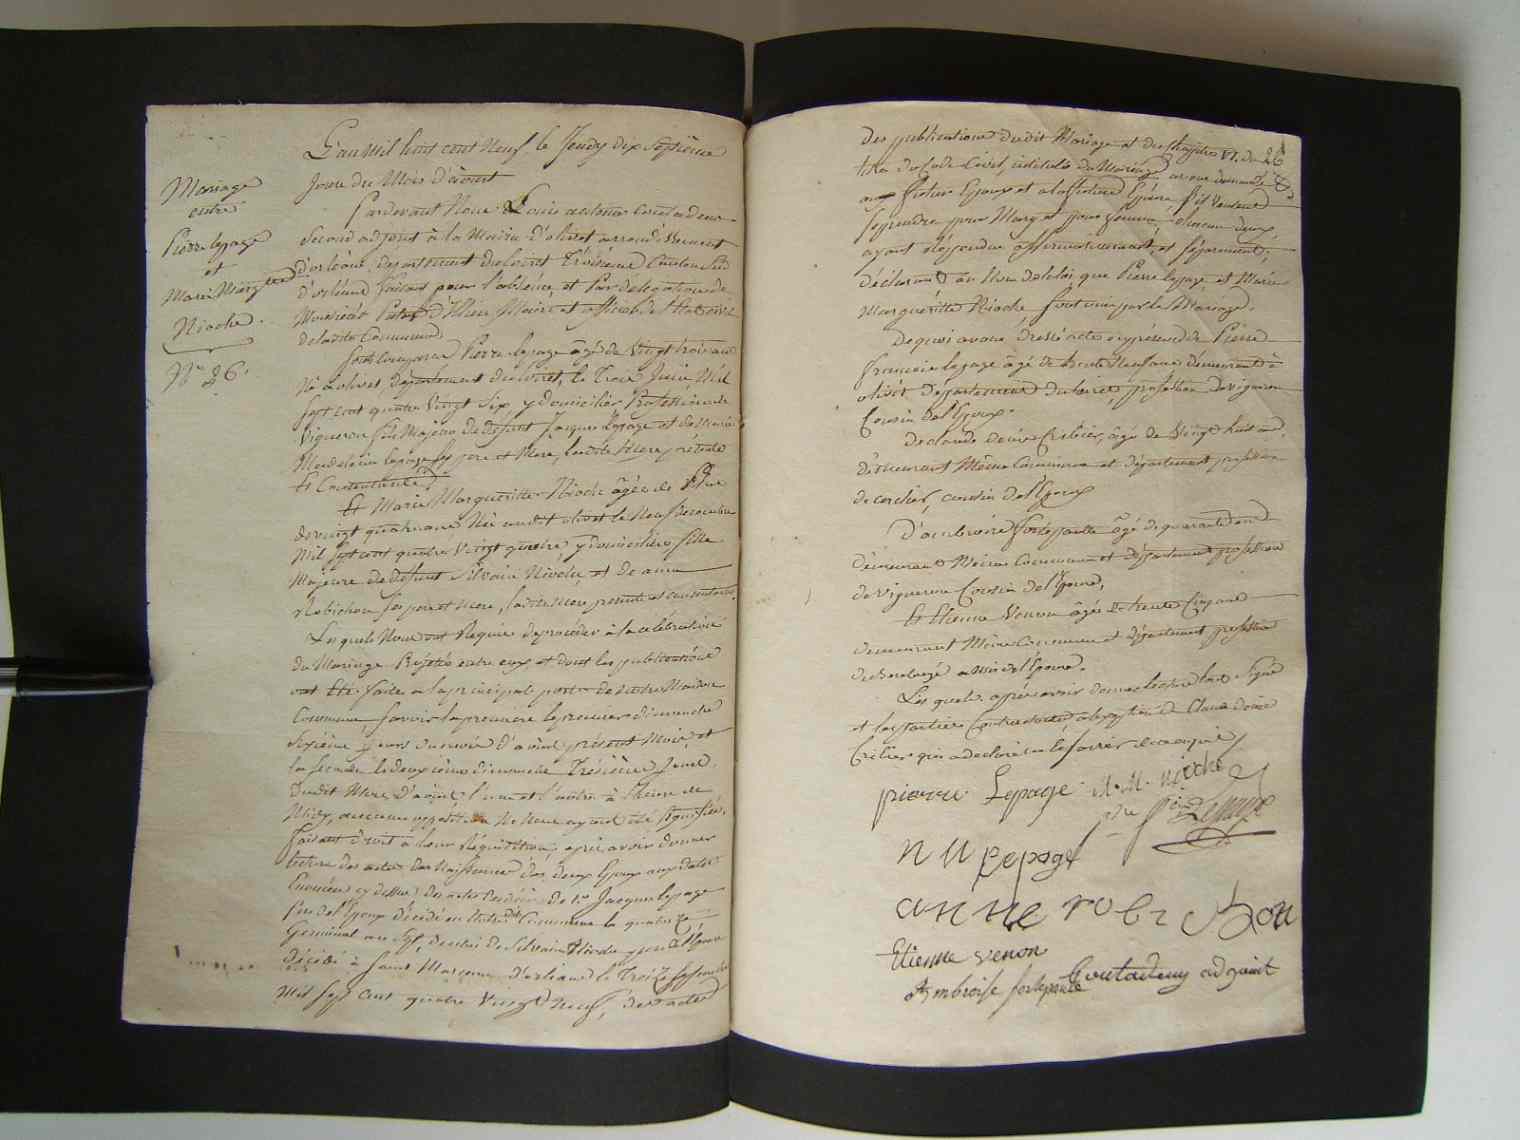 Mariage
entre
Pierre lepage
et
Marie Margueritte
Nioche.
N.º 26.
L'an Mil huit cent Neuf le Jeudy dix Septième
Jour du Mois d'aoust
Pardevant Nous Louis antoine
Second adjoint à la Mairie d'olivet arrondissement
d'orléans, departement du loiret Troisième Canton Sud
d'orléans faisant pour l'absence et Par délégation de
Monsieur Maire et officier de l'Etat civil
de ladite Commune
Sont Comparus Pierre lepage âgé de Vingt trois ans
Né à olivet, département du loiret, le Trois Juin Mil
sept cent quatre Vingt Six, y domicilié Profession de
Vigneron fils Majeur de defunt Jacques Lepage et de Marie
Magdeleine lepage ses pere et Mère, ladite Mere présente
et Consentente
Et Marie Margueritte Nioche âgée de
de vingt quatre ans Née audit olivet le Neuf decembre
Mil sept cent quatre Vingt quatre, y domiciliée fille
Majeure de defunt Silvain Nioche et de anne
Robichon ses pere et Mere, ladite Mere presente et consentente.
Lesquels Nous ont Requis de proceder à la celebration
du Mariage Projetté entre eux et dont les publications
ont été faites a la principale porte de notre Maison
Commune, savoir la premiere le premier dimanche
Sixième Jour du mois d'aoust présent Mois, et
la seconde le deuxième dimanche Treizième Jour
dudit Mois d'aoust l'une et l'autre à l'heure de
Midy, aucune opposition Ne Nous ayant été signifiée,
faisant droit à leur Réquisition, après avoir donné
lecture des actes de Naissance des deux Epoux aux dates
Enoncées cy dessus, des actes de décès de Jacques lepage
pere de l'Epoux décédé en ladite Commune le quatorze
Germinal an Sept, de celui de Silvain Nioche pere de l'Epouse
décédé à Saint Marceau d'orléans le Treize Septembre
Mil sept cent quatre Vingt Neuf, des actes
des publications dudit Mariage et du chapitre VI. du
titre du Code Civil, intitulé du Mariage avons demandé
au futur Epoux et a la future Epouse, s'ils veulent
se prendre pour Mary et pour femme chacun d'eux,
ayant répondu affirmativement, et séparément,
déclarons au Nom de la loi que Pierre lepage et Marie
Margueritte Nioche sont unis par le Mariage.
De quoi avons dressé acte en présence de Pierre
francois lepage âgé de trente Neuf ans demeurant à
olivet département du loiret, profession de vigneron
Cousin de l'Epoux.
De Claude Crilier, âgé de Vingt huit ans,
demeurant Même Commune et département profession
de cerclier, cousin de l'Epoux
D'ambroise fortepaule âgé de quarante ans
demeurant Même Commune et département profession
de Vigneron Cousin de l'Epouse,
Et Etienne Venon âgé de trente Cinq ans
demeurant Même Commune et département profession
de ami de l'Epouse.
Lesquels après avoir donné lecture ont Signé
et les parties Contractantes, à l'exception de Claude
Crilier qui a declaré ne le savoir de ce enquis
26
pierre Lepage M. M. nioche
p.re f.ois Lepage
lepage
anne robichon
Etienne venon
Ambroise fortepaule adjoint